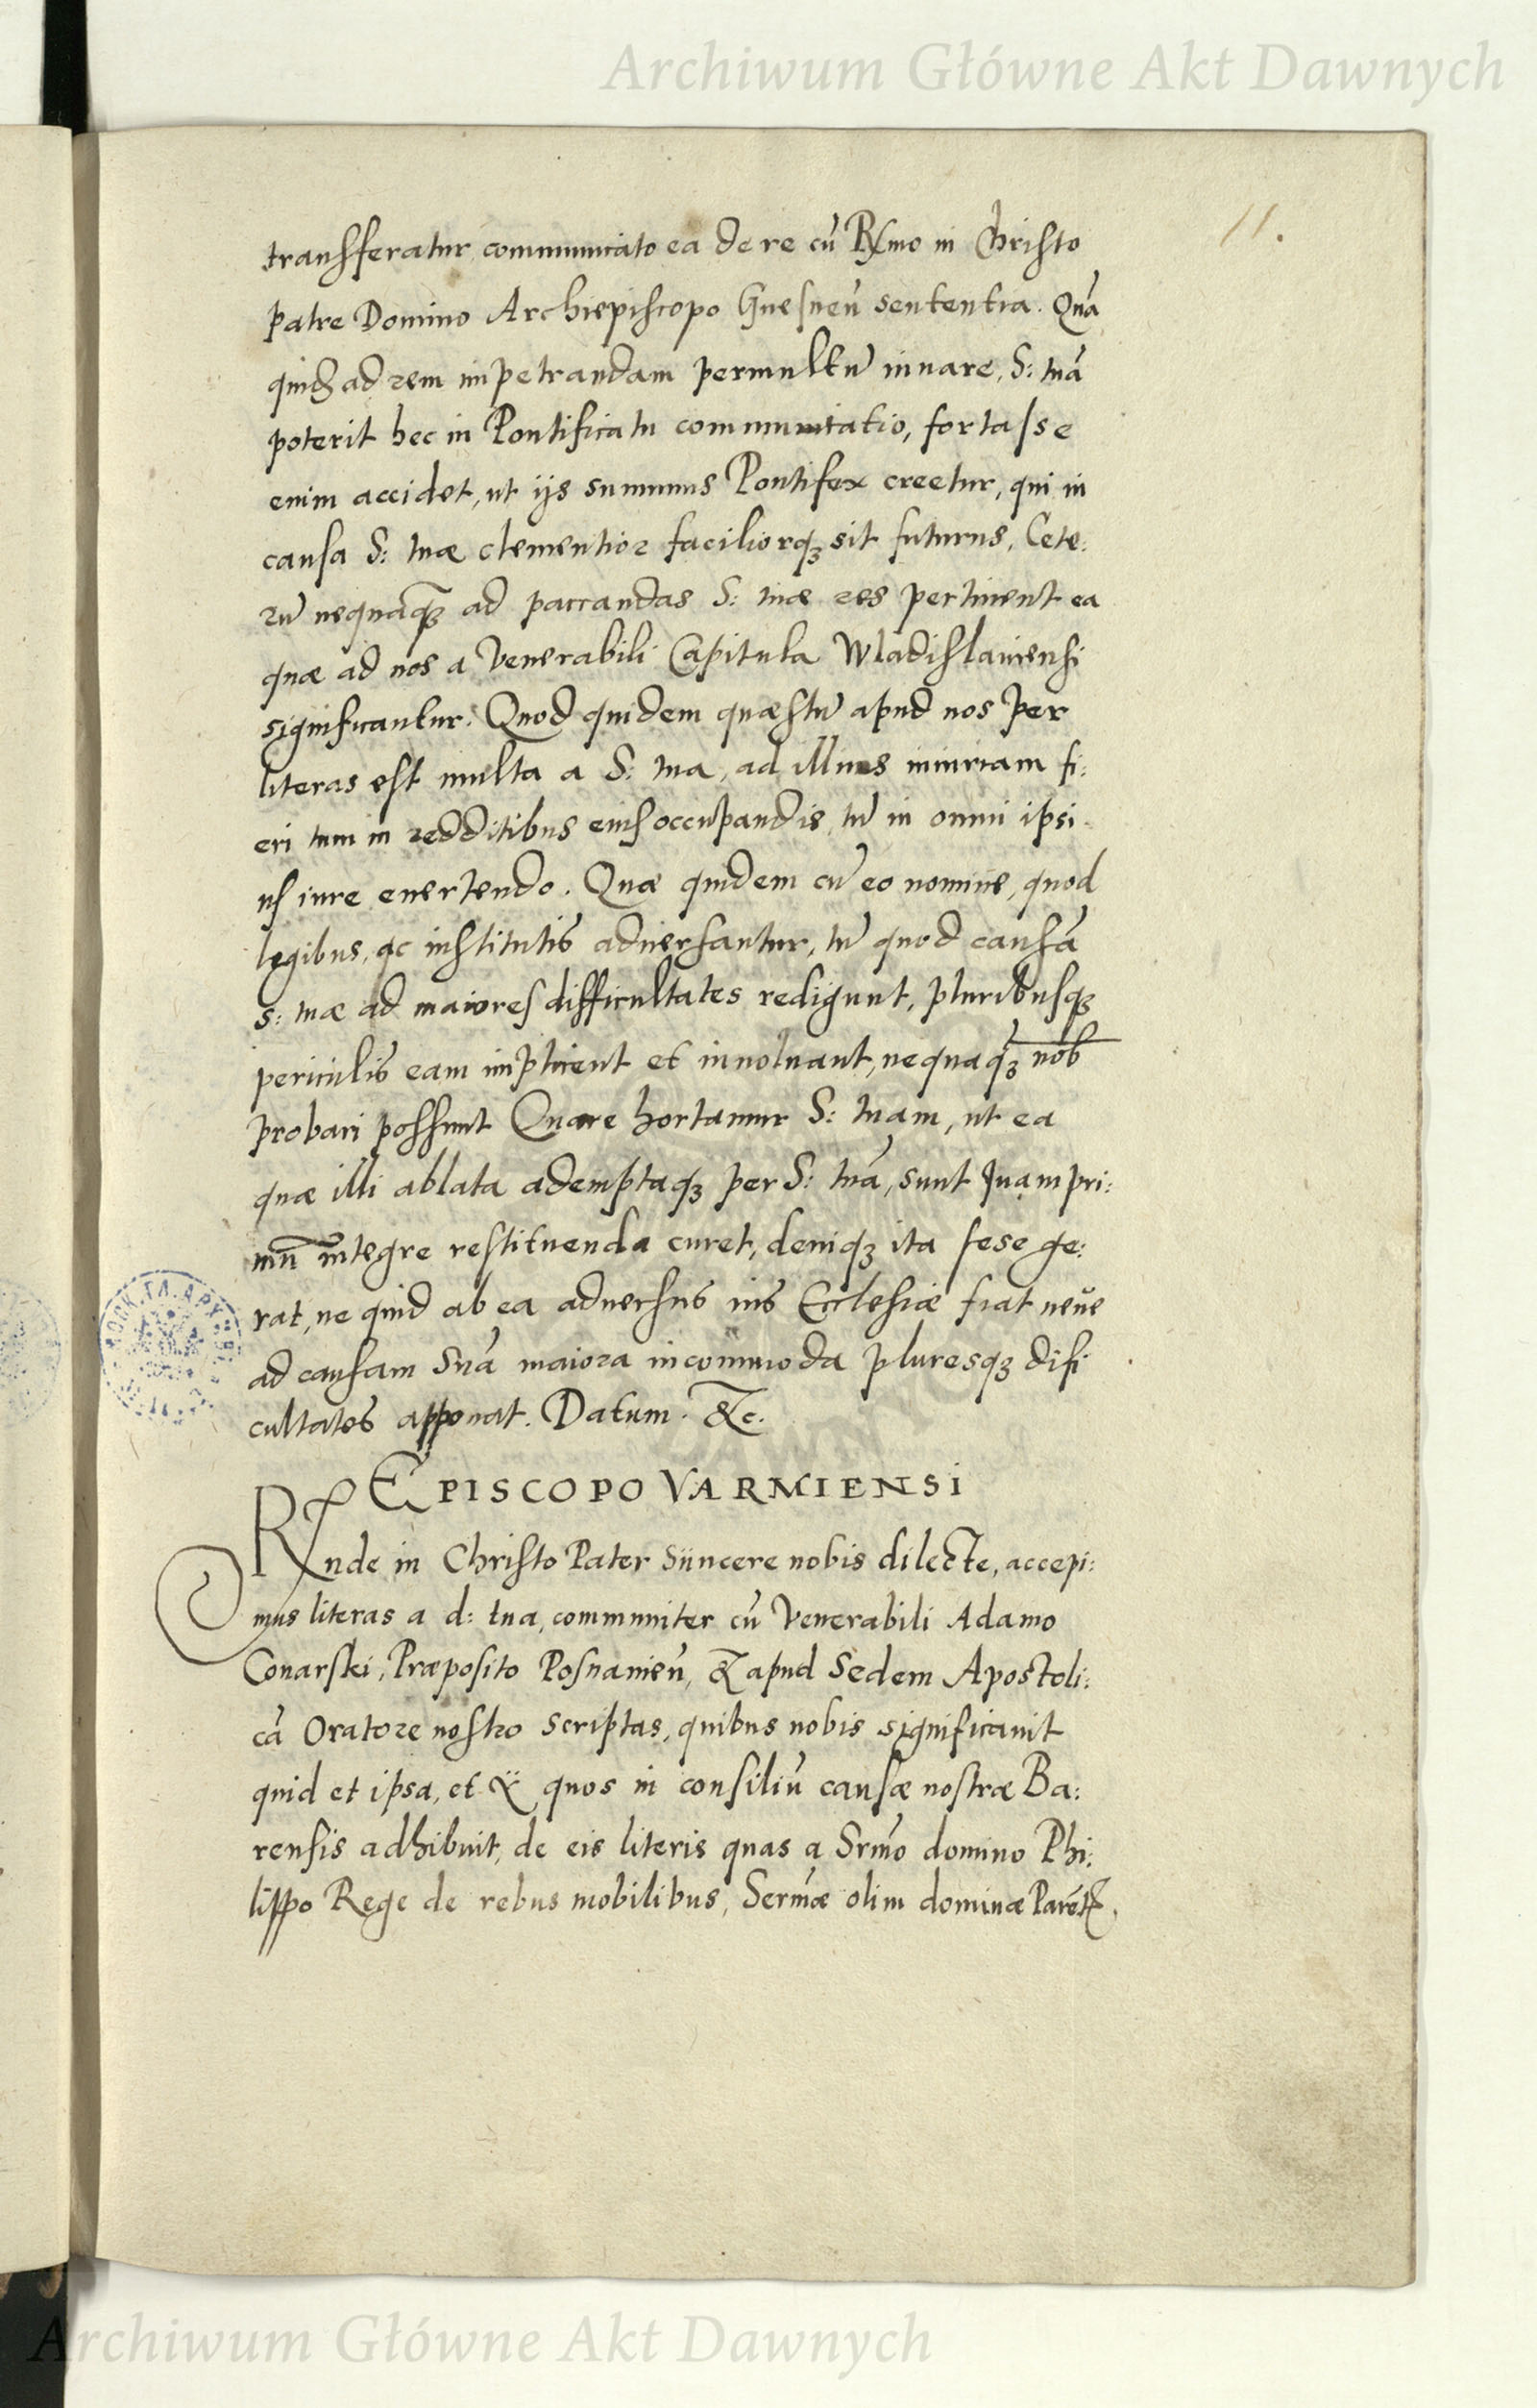 Archiwum Główne Akt Dawnych
11.
transferatur communicato ea de re cū Rx̃mo in Christo
patre Domino Archiepiscopo Gnesneñ sententia. Quā
quidẽ ad rem impetrandam permultū iuuare, S: tuā
poterit hec in Pontificatu communtatio, fortasse
enim accidet, ut ijs summus Pontifex creetur, qui in
causa S: tuæ clementior faciliorq₃ sit futurus, Cete:
rū nequaq̃₃ ad paccandas S: tuæ res pertinent ea
quæ ad nos a Venerabili Capitula Wladislauiensi
significantur. Quod quidem quæstū apud nos per
literas est multa a S: tua, ad illius iniuriam fi:
eri tum in redditibus eius occupandis, tū in omni ipsi
us iure euertendo. Quæ quidem cū eo nomine, quod
legibus, ac institutis aduersantur, tū quod causā
S: tuæ ad maiores difficultates redigunt, pluribusq₃
periculis eam implicent et inuoluant, nequaq̃₃ nob̄
probari possunt Quare hortamur S: tuam, ut ea
quæ illi ablata ademptaq₃ per S: tuā, sunt quampri:
mū integre restituenda curet, deniq₃ ita sese ge:
rat, ne quid ab ea aduersus ius Ecclesiæ fiat neue
ad causam Suā maiora incommoda pluresq₃ difi
cultates apponat. Datum. &c.
EPISCOPO VARMIENSI
Rnde in Christo Pater Sÿncere nobis dilecte, accepi:
mus literas a d: tua, communiter cū Venerabili Adamo
Conarski, Præposito Posnanieñ, & apud Sedem Apostoli:
cā Oratore nostro scriptas, quibus nobis significauit
quid et ipsa, et ÿ quos in consiliū causæ nostræ Ba:
rensis adhibuit, de eis literis quas a Srm̃o domino Phi:
lippo Rege de rebus mobilibus, Serm̃æ olim dominæ Parent̃
Archiwum Główne Akt Dawnych